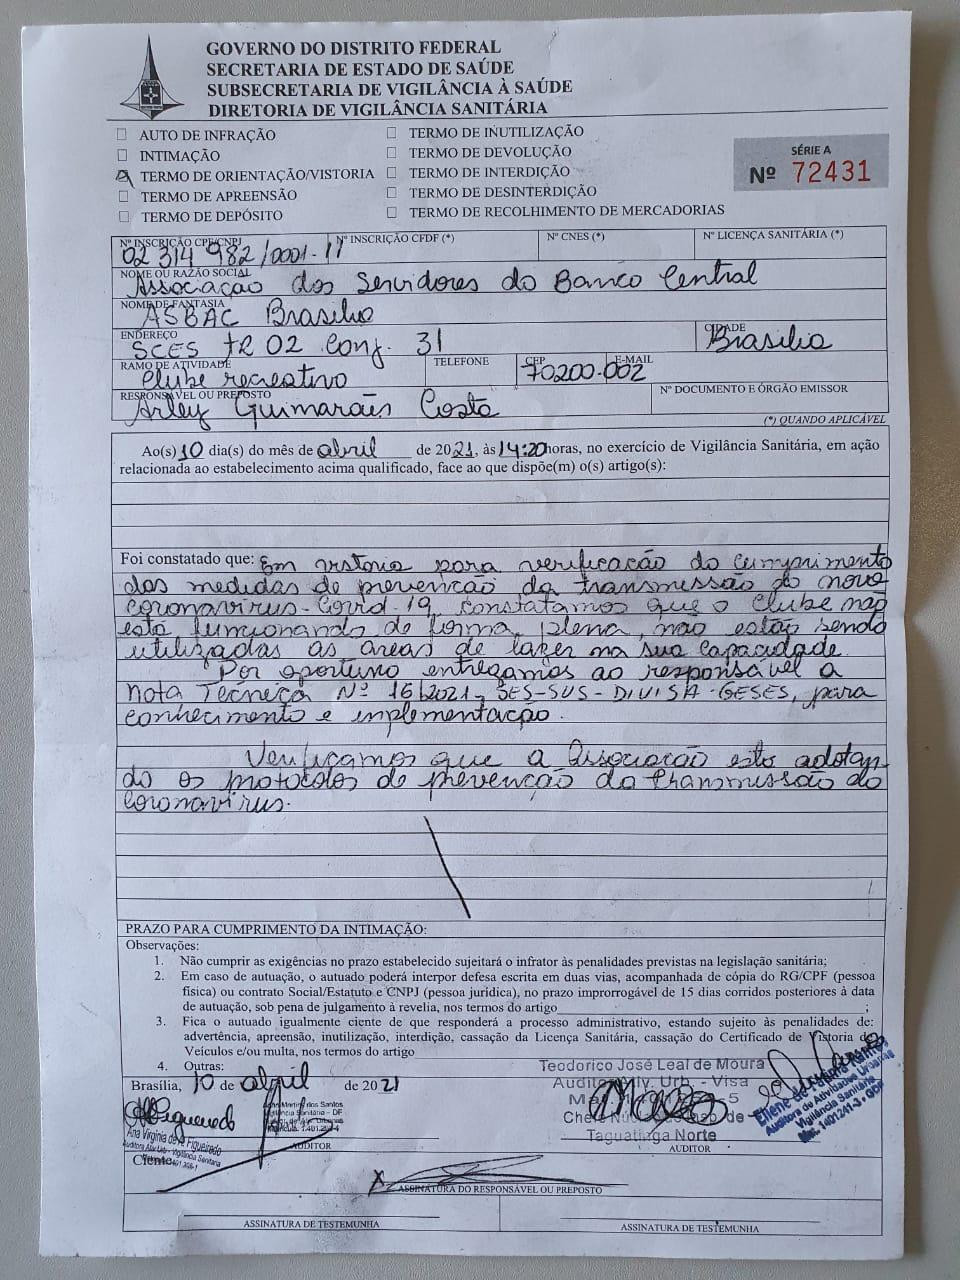 GOVERNO DO DISTRITO FEDERAL
SECRETARIA DE ESTADO DE SAÚDE
SUBSECRETARIA DE VIGILÂNCIA À SAÚDE
DIRETORIA DE VIGILÂNCIA SANITÁRIA
AUTO DE INFRAÇÃO
INTIMAÇÃO
TERMO DE ORIENTAÇÃO/VISTORIA
TERMO DE APREENSÃO
TERMO DE DEPÓSITO
TERMO DE INUTILIZAÇÃO
TERMO DE DEVOLUÇÃO
TERMO DE INTERDIÇÃO
TERMO DE DESINTERDIÇÃO
TERMO DE RECOLHIMENTO DE MERCADORIAS
SÉRIE A
Nº 72431
Nº INSCRIÇÃO CPF/CNPJ
02 314 982/0001-11
Nº INSCRIÇÃO CFDF (*)
Nº CNES (*)
Nº LICENÇA SANITÁRIA (*)
NOME OU RAZÃO SOCIAL
Associação dos Servidores do Banco Central
NOME DE FANTASIA
ASBAC Brasilia
ENDEREÇO
SCES TR 02 Conj. 31
CIDADE
Brasilia
RAMO DE ATIVIDADE
Clube recreativo
TELEFONE
CEP
70200-002
E-MAIL
RESPONSÁVEL OU PREPOSTO
Arley Guimarães Costa
Nº DOCUMENTO E ÓRGÃO EMISSOR
(*) QUANDO APLICÁVEL
Ao(s) 10 dia(s) do mês de abril de 2021, às 14:20 horas, no exercício de Vigilância Sanitária, em ação
relacionada ao estabelecimento acima qualificado, face ao que dispõe(m) o(s) artigo(s):
Foi constatado que: Em vistoria para verificação do cumprimento
das medidas de prevenção da transmissão do novo
coronavirus-Covid-19, constatamos que o clube não
está funcionando de forma plena, não estão sendo
utilizadas as áreas de lazer na sua capacidade.
Por oportuno entregamos ao responsável a
nota Tecnica Nº 16/2021-SES-SVS-DIVISA-GESES, para
conhecimento e implementação.
Verificamos que a Associação está adotan
do os protocolos de prevenção da transmissão do
coronavirus.
PRAZO PARA CUMPRIMENTO DA INTIMAÇÃO:
Observações:
1. Não cumprir as exigências no prazo estabelecido sujeitará o infrator às penalidades previstas na legislação sanitária;
2. Em caso de autuação, o autuado poderá interpor defesa escrita em duas vias, acompanhada de cópia do RG/CPF (pessoa
física) ou contrato Social/Estatuto e CNPJ (pessoa jurídica), no prazo improrrogável de 15 dias corridos posteriores à data
de autuação, sob pena de julgamento à revelia, nos termos do artigo ;
3. Fica o autuado igualmente ciente de que responderá a processo administrativo, estando sujeito às penalidades de:
advertência, apreensão, inutilização, interdição, cassação da Licença Sanitária, cassação do Certificado de Vistoria de
Veículos e/ou multa, nos termos do artigo
4. Outras:
Brasília, 10 de abril de 2021
Teodorico José Leal de Moura
Auditor
Urb. - Visa
Taguatinga Norte
AUDITOR
Auditora de Atividades Urbanas
Vigilância Sanitária
Figueredo
Ana Virginia de A. Figueiredo
Vigilância Sanitaria
Martins dos Santos
Vigilância Sanitária - DF
AUDITOR
Ciente:
ASSINATURA DO RESPONSÁVEL OU PREPOSTO
ASSINATURA DE TESTEMUNHA
ASSINATURA DE TESTEMUNHA